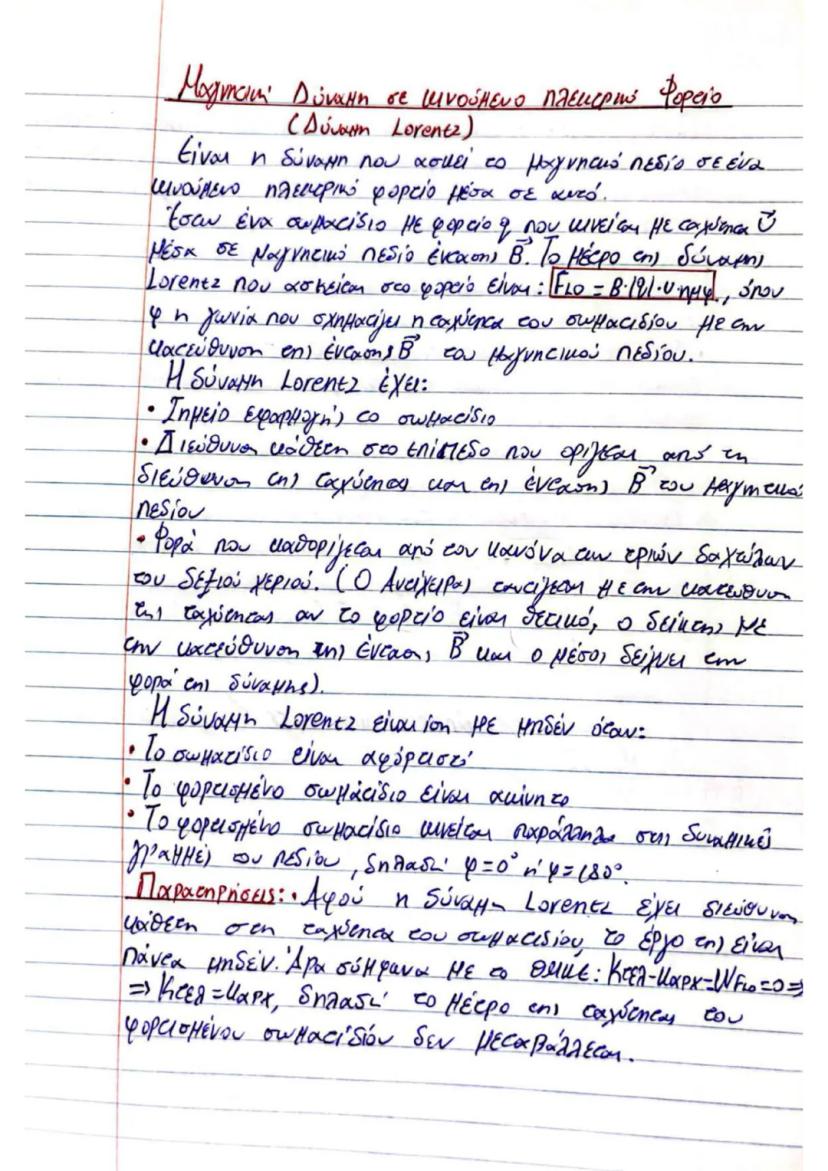 Μαγνητική Δύναμη σε κινούμενο ηλεκτρικό Φορείο
(Δύναμη Lorentz)
Είναι η δύναμη που ασκεί το μαγνητικό πεδίο σε ένα
κινούμενο ηλεκτρικό φορείο μέσα σε αυτό.
Έστω ένα σωματίδιο με φορείο q που κινείται με ταχύτητα υ⃗
μέσα σε μαγνητικό πεδίο έντασης B⃗. Το μέτρο της δύναμης
Lorentz που ασκείται στο φορείο είναι: FLO = B·|q|·υ·ημφ, όπου
φ η γωνία που σχηματίζει η ταχύτητα του σωματιδίου με την
κατεύθυνση της έντασης B⃗ του μαγνητικού πεδίου.
Η δύναμη Lorentz έχει:
• Σημείο εφαρμογής το σωματίδιο
• Διεύθυνση κάθετη στο επίπεδο που ορίζεται από τη
διεύθυνση της ταχύτητας και της έντασης B⃗ του μαγνητικού
πεδίου
• Φορά που καθορίζεται από τον κανόνα των τριών δαχτύλων
του δεξιού χεριού. (Ο Αντίχειρας ταυτίζεται με την κατεύθυνση
της ταχύτητας αν το φορείο είναι θετικό, ο δείκτης με
την κατεύθυνση της έντασης B⃗ και ο μέσος δείχνει την
φορά της δύναμης).
Η δύναμη Lorentz είναι ίση με μηδέν όταν:
• Το σωματίδιο είναι αφόρτιστο
• Το φορτισμένο σωμάτίδιο είναι ακίνητο
• Το φορτισμένο σωματίδιο κινείται παράλληλα στις δυναμικές
γραμμές του πεδίου, δηλαδή φ=0° ή φ=180°.
Παρατηρήσεις: • Αφού η δύναμη Lorentz έχει διεύθυνση
κάθετη στη ταχύτητα του σωματιδίου, το έργο της είναι
πάντα μηδέν. Άρα σύμφωνα με το ΘΜΚΕ: Κτελ-Καρχ=WFLO=0⇒
⇒ Κτελ=Καρχ, δηλαδή το μέτρο της ταχύτητας του
φορτισμένου σωματιδίου δεν μεταβάλλεται.